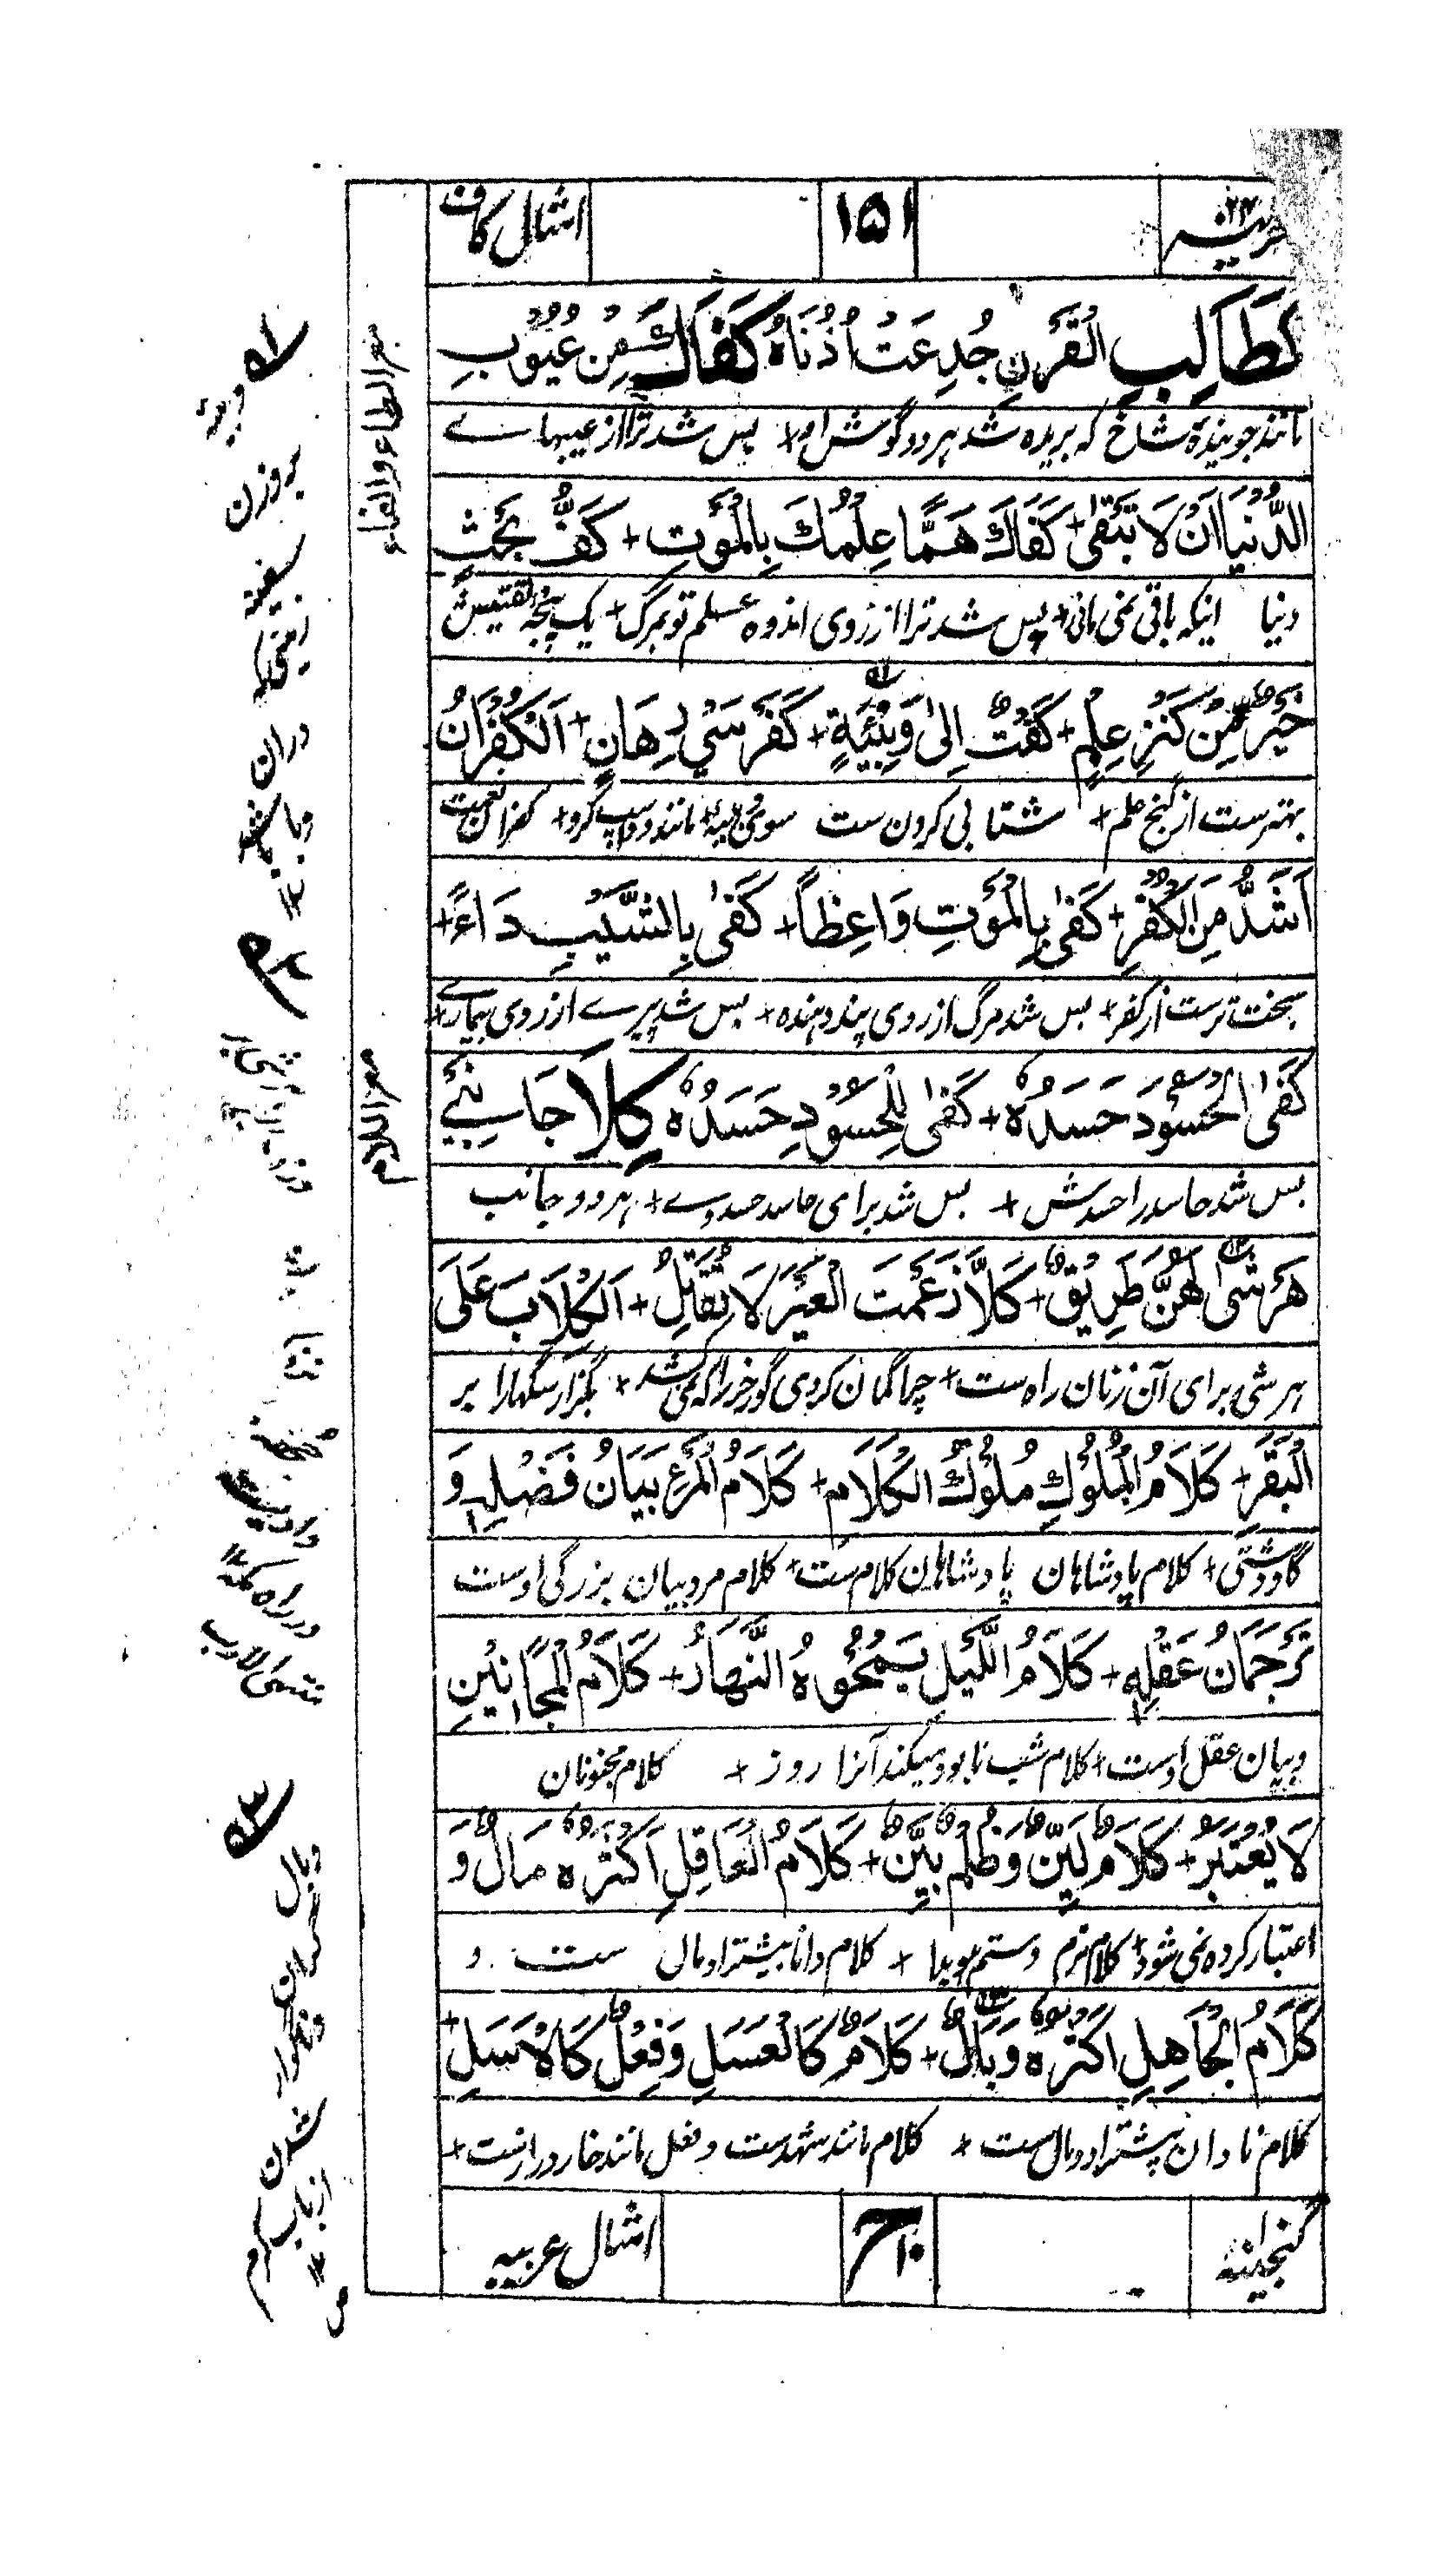 ۱۵۱
امثال کاف
كَطَالِبِ الْقَرْنِ جُدِعَتْ اُذُنَاهُ كَفَاكَ مِنْ عُيُوْبِ
مانند جویندهٔ شاخ که بریده شد هر دو گوش او + بس شد ترا از عیبهاے
الدُّنْيَا اَنْ لَا تَبْقٰى + كَفَاكَ هَمًّا عِلْمُكَ بِالْمَوْتِ + كَفُّ بَخْتٍ
دنیا اینکه باقی نمی مانی + بس شد ترا از روی اندوه علم تو بمرگ + یک پنجه
خَيْرٌ مِّنْ كَنْزِ عِلْمٍ + كَفْتٌ اِلٰى وَبِيْئَةٍ + كَفَرَسَيْ رِهَانٍ + اَلْكُفْرَانُ
بهترست از گنج علم + شتابی کردن ست سوی + مانند دو اسپ گرو + کفران نعمت
اَشَدُّ مِنَ الْكُفْرِ + كَفٰى بِالْمَوْتِ وَاعِظًا + كَفٰى بِالشَّيْبِ دَاءً +
سخت ترست از کفر + بس شد مرگ از روی پند دهنده + بس شد پیرے از روی بیمارے +
كَفَى الْحَسُوْدَ حَسَدُهٗ + كَفٰى لِلْحَسُوْدِ حَسَدُهٗ كِلَا جَانِبَيْ
بس شد حاسد را حسدش + بس شد برای حاسد حسد وے + هر دو جانب
هَرْشٰى لَهُنَّ طَرِيْقٌ + كَلَّا زَعَمْتَ الْعَيْرَ لَا تُقَاتِلُ + اَلْكِلَابَ عَلَى
هرشی برای آن زنان راه ست + چرا گمان کردی گورخر را که نمی کشد + بگزار سگها را بر
الْبَقَرِ + كَلَامُ الْمُلُوْكِ مُلُوْكُ الْكَلَامِ + كَلَامُ الْمَرْءِ بَيَانُ فَضْلِهٖ وَ
گاو دشتی + کلام پادشاهان پادشاهان کلام ست + کلام مرد بیان بزرگی اوست
تَرْجُمَانُ عَقْلِهٖ + كَلَامُ اللَّيْلِ يَمْحُوْهُ النَّهَارُ + كَلَامُ الْمَجَانِيْنِ
و بیان عقل اوست + کلام شب نابود میکند آنرا روز + کلام مجنونان
لَا يُعْتَبَرُ + كَلَامٌ لَيِّنٌ وَظُلْمٌ بَيِّنٌ + كَلَامُ الْعَاقِلِ اَكْثَرُهٗ مَالٌ وَ
اعتبار کرده نمی شود + کلام نرم و ستم هویدا + کلام دانا بیشتر او مال ست و
كَلَامُ الْجَاهِلِ اَكْثَرُهٗ وَبَالٌ + كَلَامٌ كَالْعَسَلِ وَفِعْلٌ كَالْاَسَلِ +
کلام نادان بیشتر او وبال ست + کلام مانند شهدست و فعل مانند خار درازست +
گنجینهٔ
امثال عربیه
مع الطاء والفاء
مع اللام
بروزن
سفینه
زمینی که
دران
وبا باشد
۱۲
وبال
گران
و ناگوار
شدن
از باب کرم
۱۲
ص